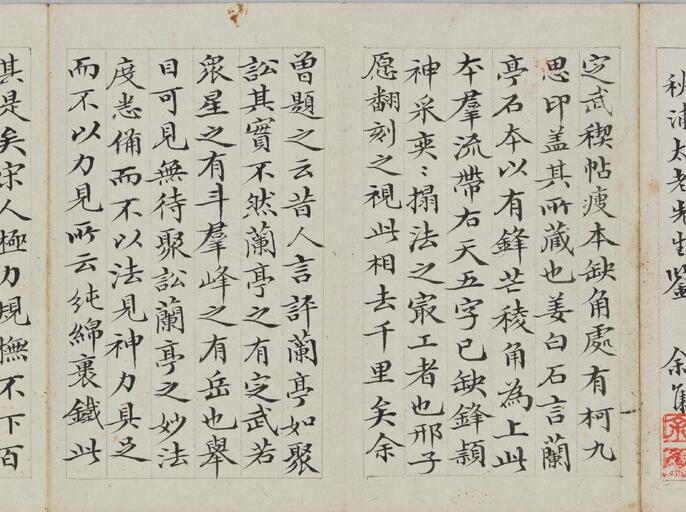 秋浦太老先生鑒 余集
定武稧帖瘦本缺角處有柯九
思印盖其所藏也姜白石言蘭
亭石本以有鋒芒稜角為上此
本羣流帶右天五字已缺鋒頴
神采奕〻搨法之㝡工者也邢子
愿翻刻之視此相去千里矣余
曽題之云昔人言評蘭亭如聚
訟其實不然蘭亭之有定武若
衆星之有斗羣峰之有岳也舉
目可見無待聚訟蘭亭之妙法
度悉備而不以法見神力具足
而不以力見所云純綿裹鐵此
其是矣宋人極力規撫不下百